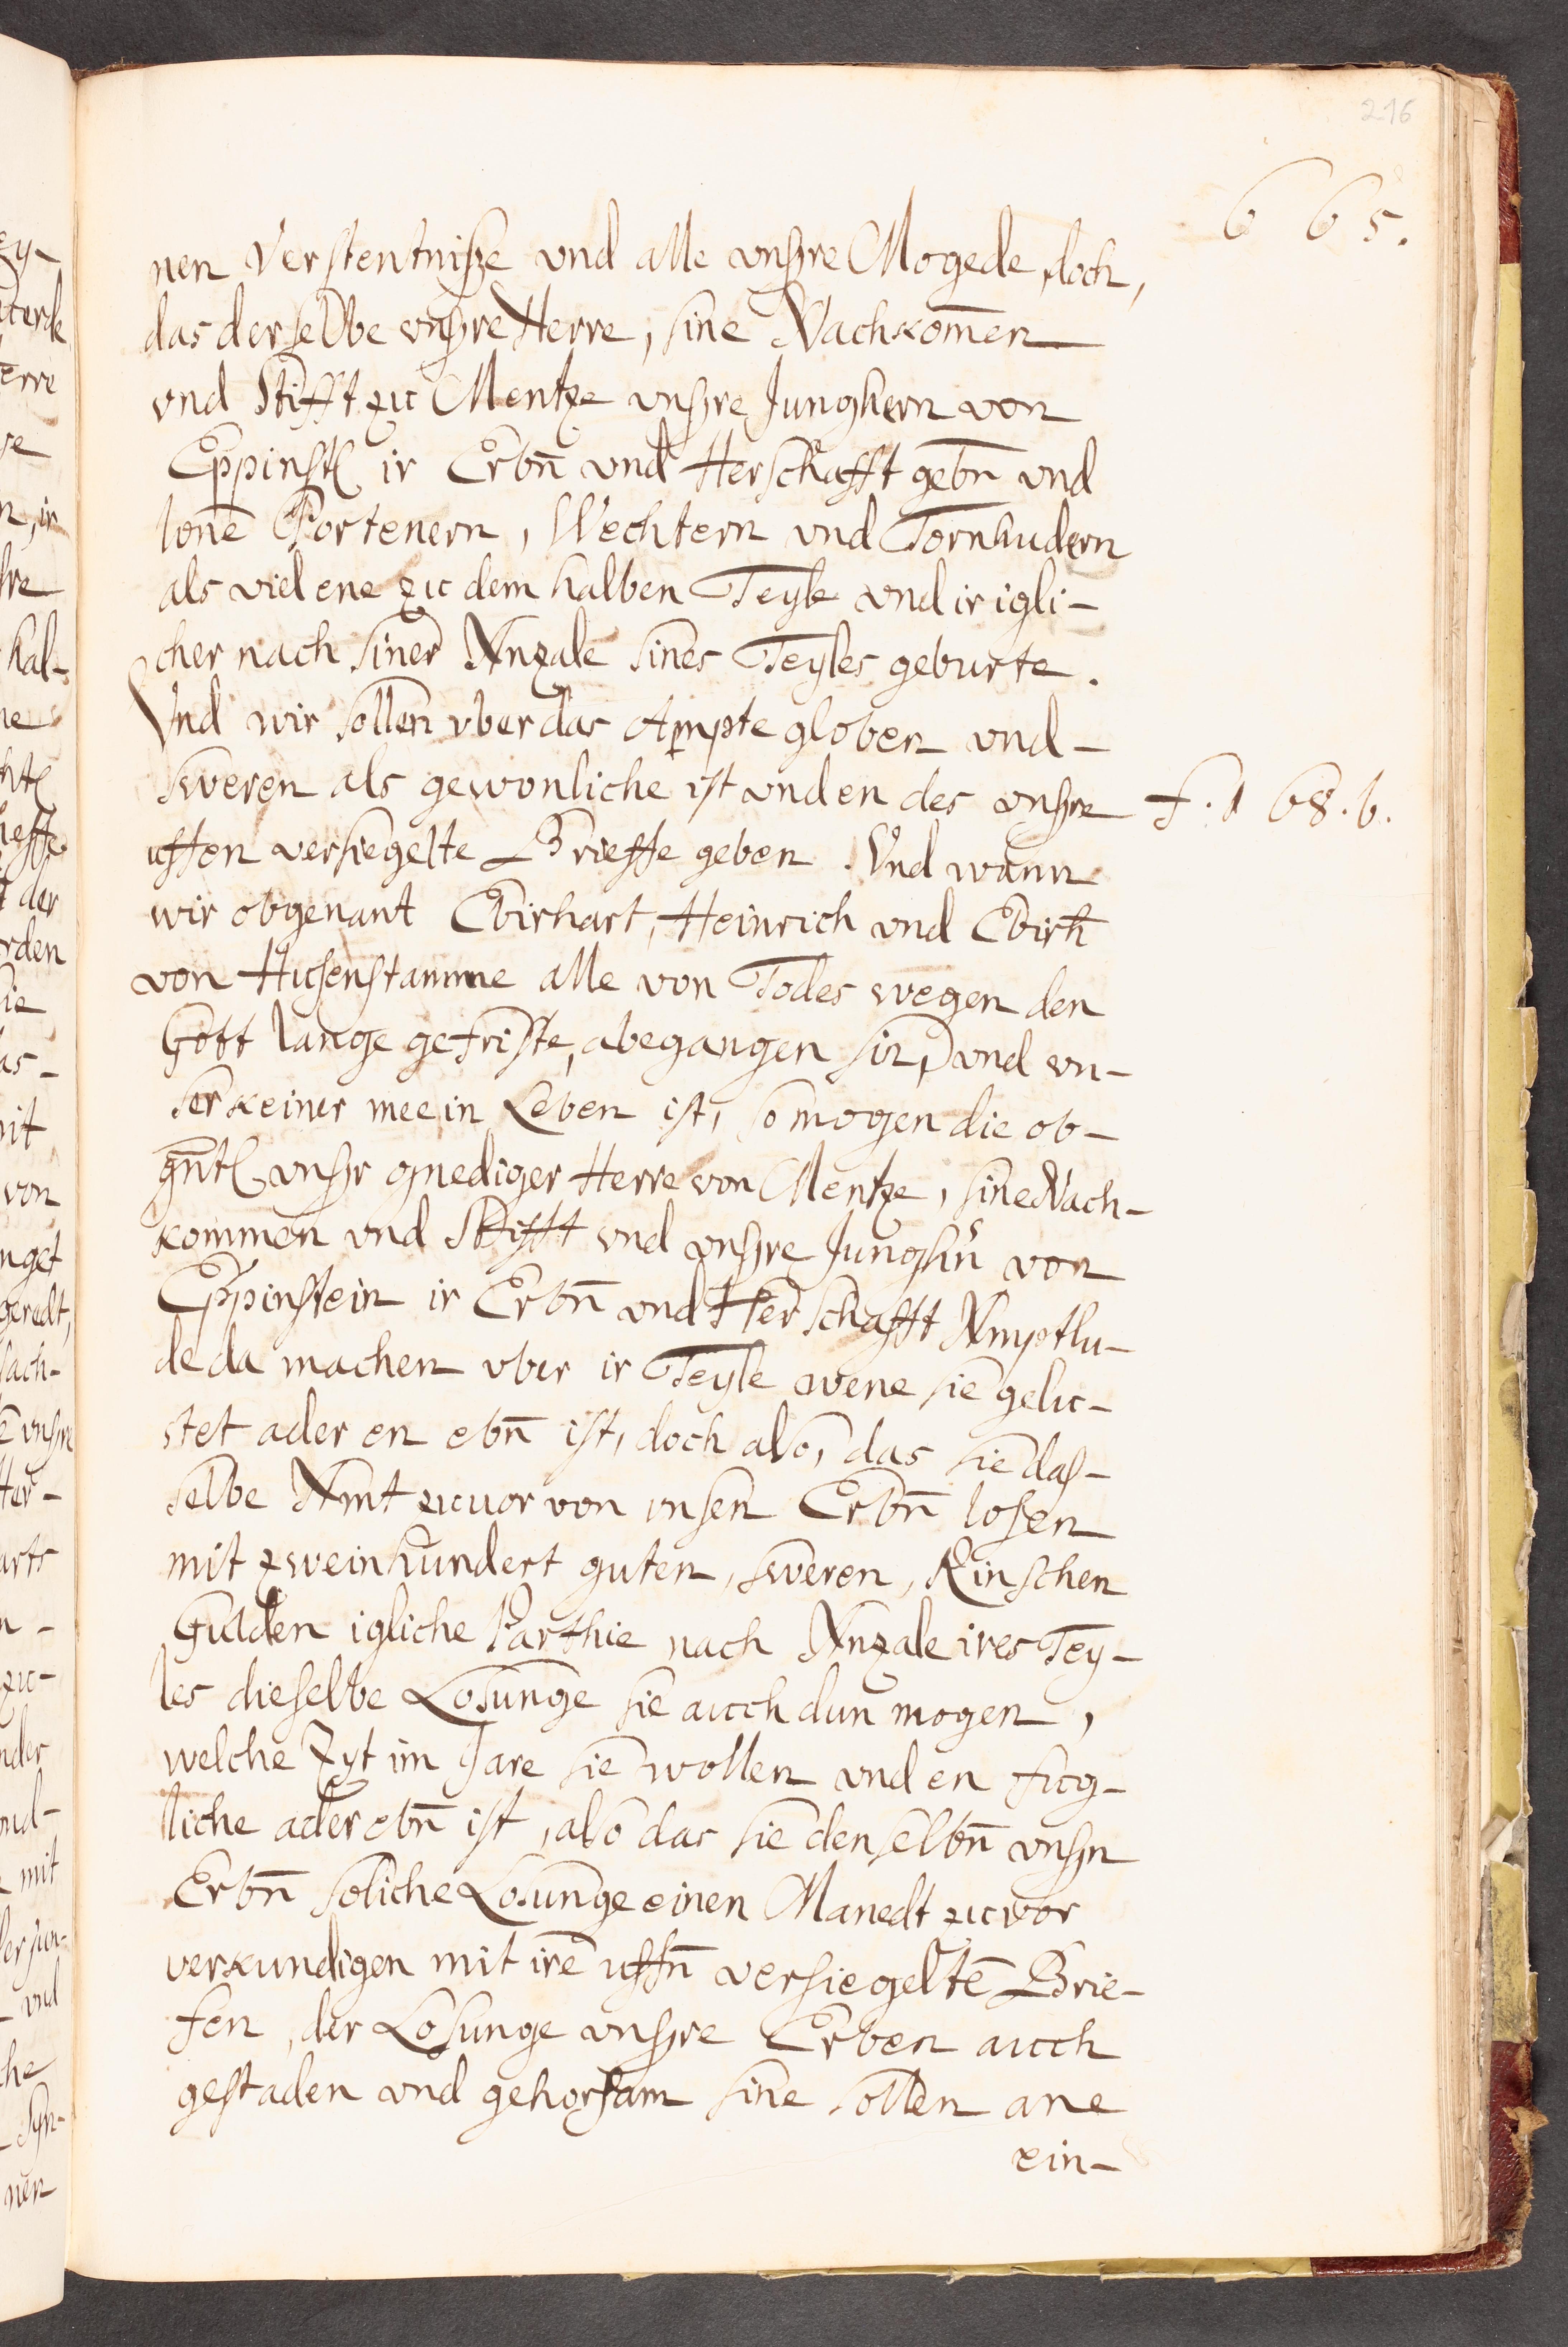 216
665.
nen Verstentniße vnd alle vnßre Mogede, doch,
das derselbe vnßre Herre, sine Nachkom̄en
vnd Stifft zu Mentze vnßre Junghern von
Eppinst ir Erbn̄ vnd Herschafft gebn̄ vnd
lone Portenern, Wechtern vnd Tornhudern
als viel ene zu dem halben Teyle vnd ir igli-
cher nach siner Anzale sines Teyles geburte.
Vnd wir sollen vber das Ampte globen vnd-
sweren als gewonliche ist vnd en des vnßre
f. 168. b.
uffen versiegelte Brieffe geben. Vnd wann
wir obgenant Ebirhart, Heinrich vnd Ebirh̄
von Husenstamme alle von Todes wegen den
Gott lange gefriste, abegangen sin, vnd vn-
ser keiner mee in Leben ist, so mogen die ob-
gn̄t vnßr gnediger Herre von Mentze, sine Nach-
kommen vnd Stifft vnd vnßre Junghn̄ von
Eppinstein ir Erbn̄ vnd Herschafft Amptlu-
de da machen vber ir Teyle wene sie gelu-
stet ader en ebn̄ ist, doch also, das sie daß-
selbe Amt zuuor von vnsen Erbn̄ losen
mit zweinhundert guten, sweren, Rinschen
Gulden igliche Parthie nach Anzale ires Tey-
les dieselbe Losunge sie auch dun mogen,
welche Zyt im Jare sie wollen vnd en fug-
liche ader ebn̄ ist, also das sie denselbn̄ vnßn
Erbn̄ soliche Losunge einen Manedt zuvor
verkundigen mit irē uffn̄ versiegeltē Brie-
fen, der Losunge vnßre Erben auch
gestaden vnd gehorsam sine sollen ane
ein-